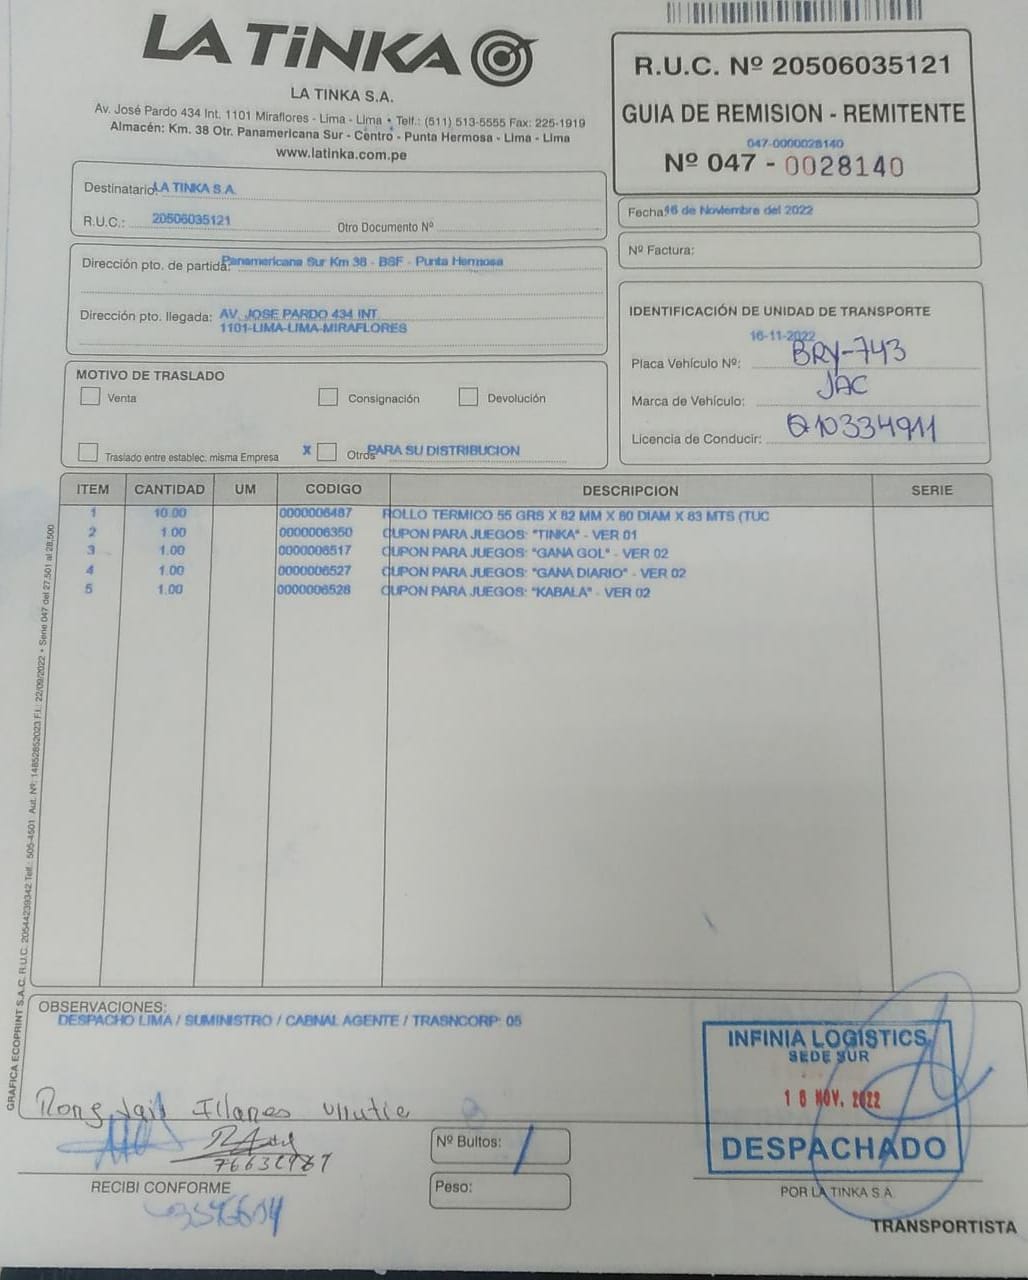 LA TiNKA
LA TINKA S.A.
Av. José Pardo 434 Int. 1101 Miraflores - Lima - Lima • Telf.: (511) 513-5555 Fax: 225-1919
Almacén: Km. 38 Otr. Panamericana Sur - Centro - Punta Hermosa - Lima - Lima
www.latinka.com.pe
R.U.C. Nº 20506035121
GUIA DE REMISION - REMITENTE
047-0000028140
Nº 047 - 0028140
Destinatario: LA TINKA S.A.
R.U.C.: 20506035121 Otro Documento Nº
Fecha: 16 de Noviembre del 2022
Nº Factura:
Dirección pto. de partida: Panamericana Sur Km 38 - BSF - Punta Hermosa
Dirección pto. llegada: AV. JOSE PARDO 434 INT.
1101-LIMA-LIMA-MIRAFLORES
IDENTIFICACIÓN DE UNIDAD DE TRANSPORTE
16-11-2022
Placa Vehículo Nº: BRY-743
Marca de Vehículo: JAC
Licencia de Conducir: Q10334911
MOTIVO DE TRASLADO
Venta Consignación Devolución
Traslado entre establec. misma Empresa X Otros PARA SU DISTRIBUCION
ITEM CANTIDAD UM CODIGO DESCRIPCION SERIE
1 10.00 0000006487 ROLLO TERMICO 55 GRS X 82 MM X 80 DIAM X 83 MTS (TUC
2 1.00 0000006350 CUPON PARA JUEGOS: "TINKA" - VER 01
3 1.00 0000006517 CUPON PARA JUEGOS: "GANA GOL" - VER 02
4 1.00 0000006527 CUPON PARA JUEGOS: "GANA DIARIO" - VER 02
5 1.00 0000006528 CUPON PARA JUEGOS: "KABALA" - VER 02
GRAFICA ECOPRINT S.A.C. R.U.C. 20544239342 Telf.: 505-4501 Aut. Nº: 14852852023 F.I.: 22/09/2022 • Serie 047 del 27,501 al 28,500
OBSERVACIONES:
DESPACHO LIMA / SUMINISTRO / CABNAL AGENTE / TRASNCORP: 05
INFINIA LOGISTICS
SEDE SUR
16 NOV. 2022
DESPACHADO
Illanes
RECIBI CONFORME
Nº Bultos: 1
Peso:
POR LA TINKA S.A.
TRANSPORTISTA